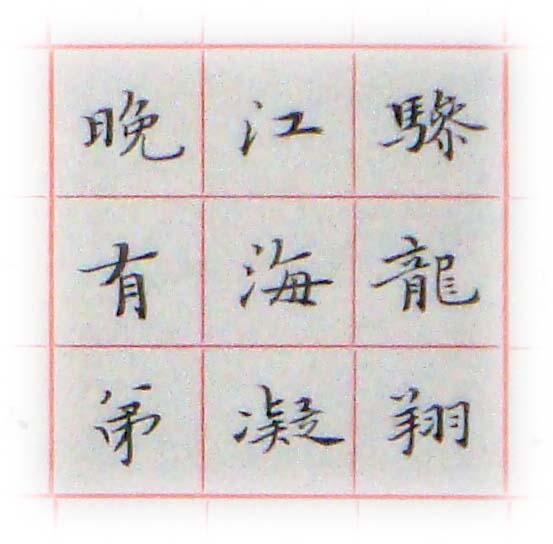 驂龍翔
江海凝
晚有弟